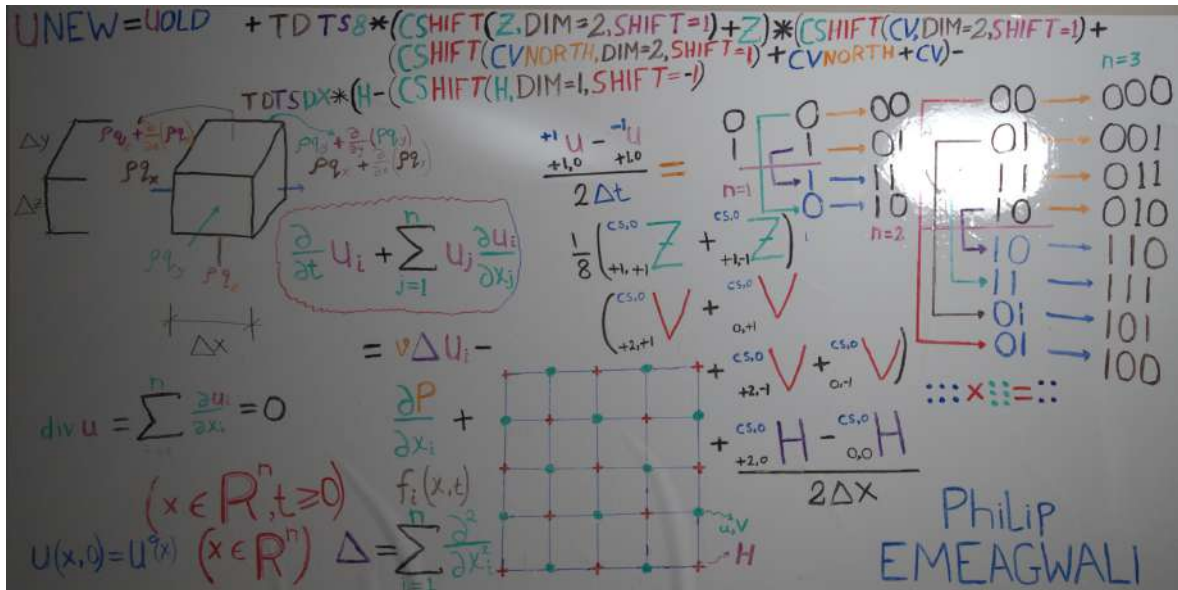 UNEW=UOLD + TDTS8*(CSHIFT(Z,DIM=2,SHIFT=1)+Z)*(CSHIFT(CV,DIM=2,SHIFT=1)+
(CSHIFT(CVNORTH,DIM=2,SHIFT=1)+CVNORTH+CV)-
TDTSDX*(H-(CSHIFT(H,DIM=1,SHIFT=-1)
Δy
Δz
Δx
ρq_z + ∂/∂z(ρq_z)
ρq_y + ∂/∂y(ρq_y)
ρq_x + ∂/∂x(ρq_x)
ρq_x
ρq_y
ρq_z
∂/∂t u_i + Σ_{j=1}^{n} u_j ∂u_i/∂x_j
= νΔu_i -
∂P/∂x_i +
f_i(x,t)
div u = Σ^{n} ∂u_i/∂x_i = 0
(x ∈ R^n, t ≥ 0)
U(x,0)=U^0(x) (x ∈ R^n) Δ = Σ_{i=1}^{n} ∂²/∂x_i²
+1 u - -1 u
+1,0 +1,0
2Δt
=
1/8 (cs,0 +1,+1 Z + cs,0 +1,-1 Z)
(cs,0 +2,+1 V + cs,0 0,+1 V
+ cs,0 +2,-1 V + cs,0 0,-1 V)
+ cs,0 +2,0 H - cs,0 0,0 H
2Δx
u,V
H
0 0 00
1 1 01
1 11
0 10
n=1
n=2
n=3
00 000
01 001
11 011
10 010
10 110
11 111
01 101
01 100
× =
PhiLip
EMEAGWALI